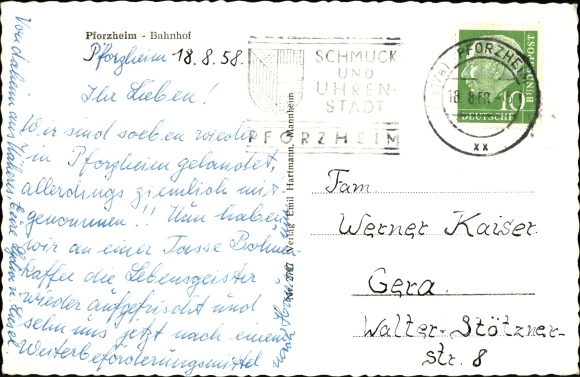 Pforzheim - Bahnhof
Pforzheim 18.8.58.
Ihr Lieben!
Wir sind soeben wieder
in Pforzheim gelandet,
allerdings ziemlich mit-
genommen!! Nun haben
wir an einer Tasse Bohnen-
kaffee die Lebensgeister
wieder aufgefrischt und
sehn uns jetzt nach einem
Weiterbeförderungsmittel
um.
Von daheim aus Näheres. Eure
Verlag Emil Hartmann, Mannheim
SCHMUCK
UND
UHREN-
STADT
PFORZHEIM
PFORZHE
18.8.58.-1
xx
10
DEUTSCHE
BUNDESPOST
Fam.
Werner Kaiser.
Gera.
Walter-Stötzner-
str. 8